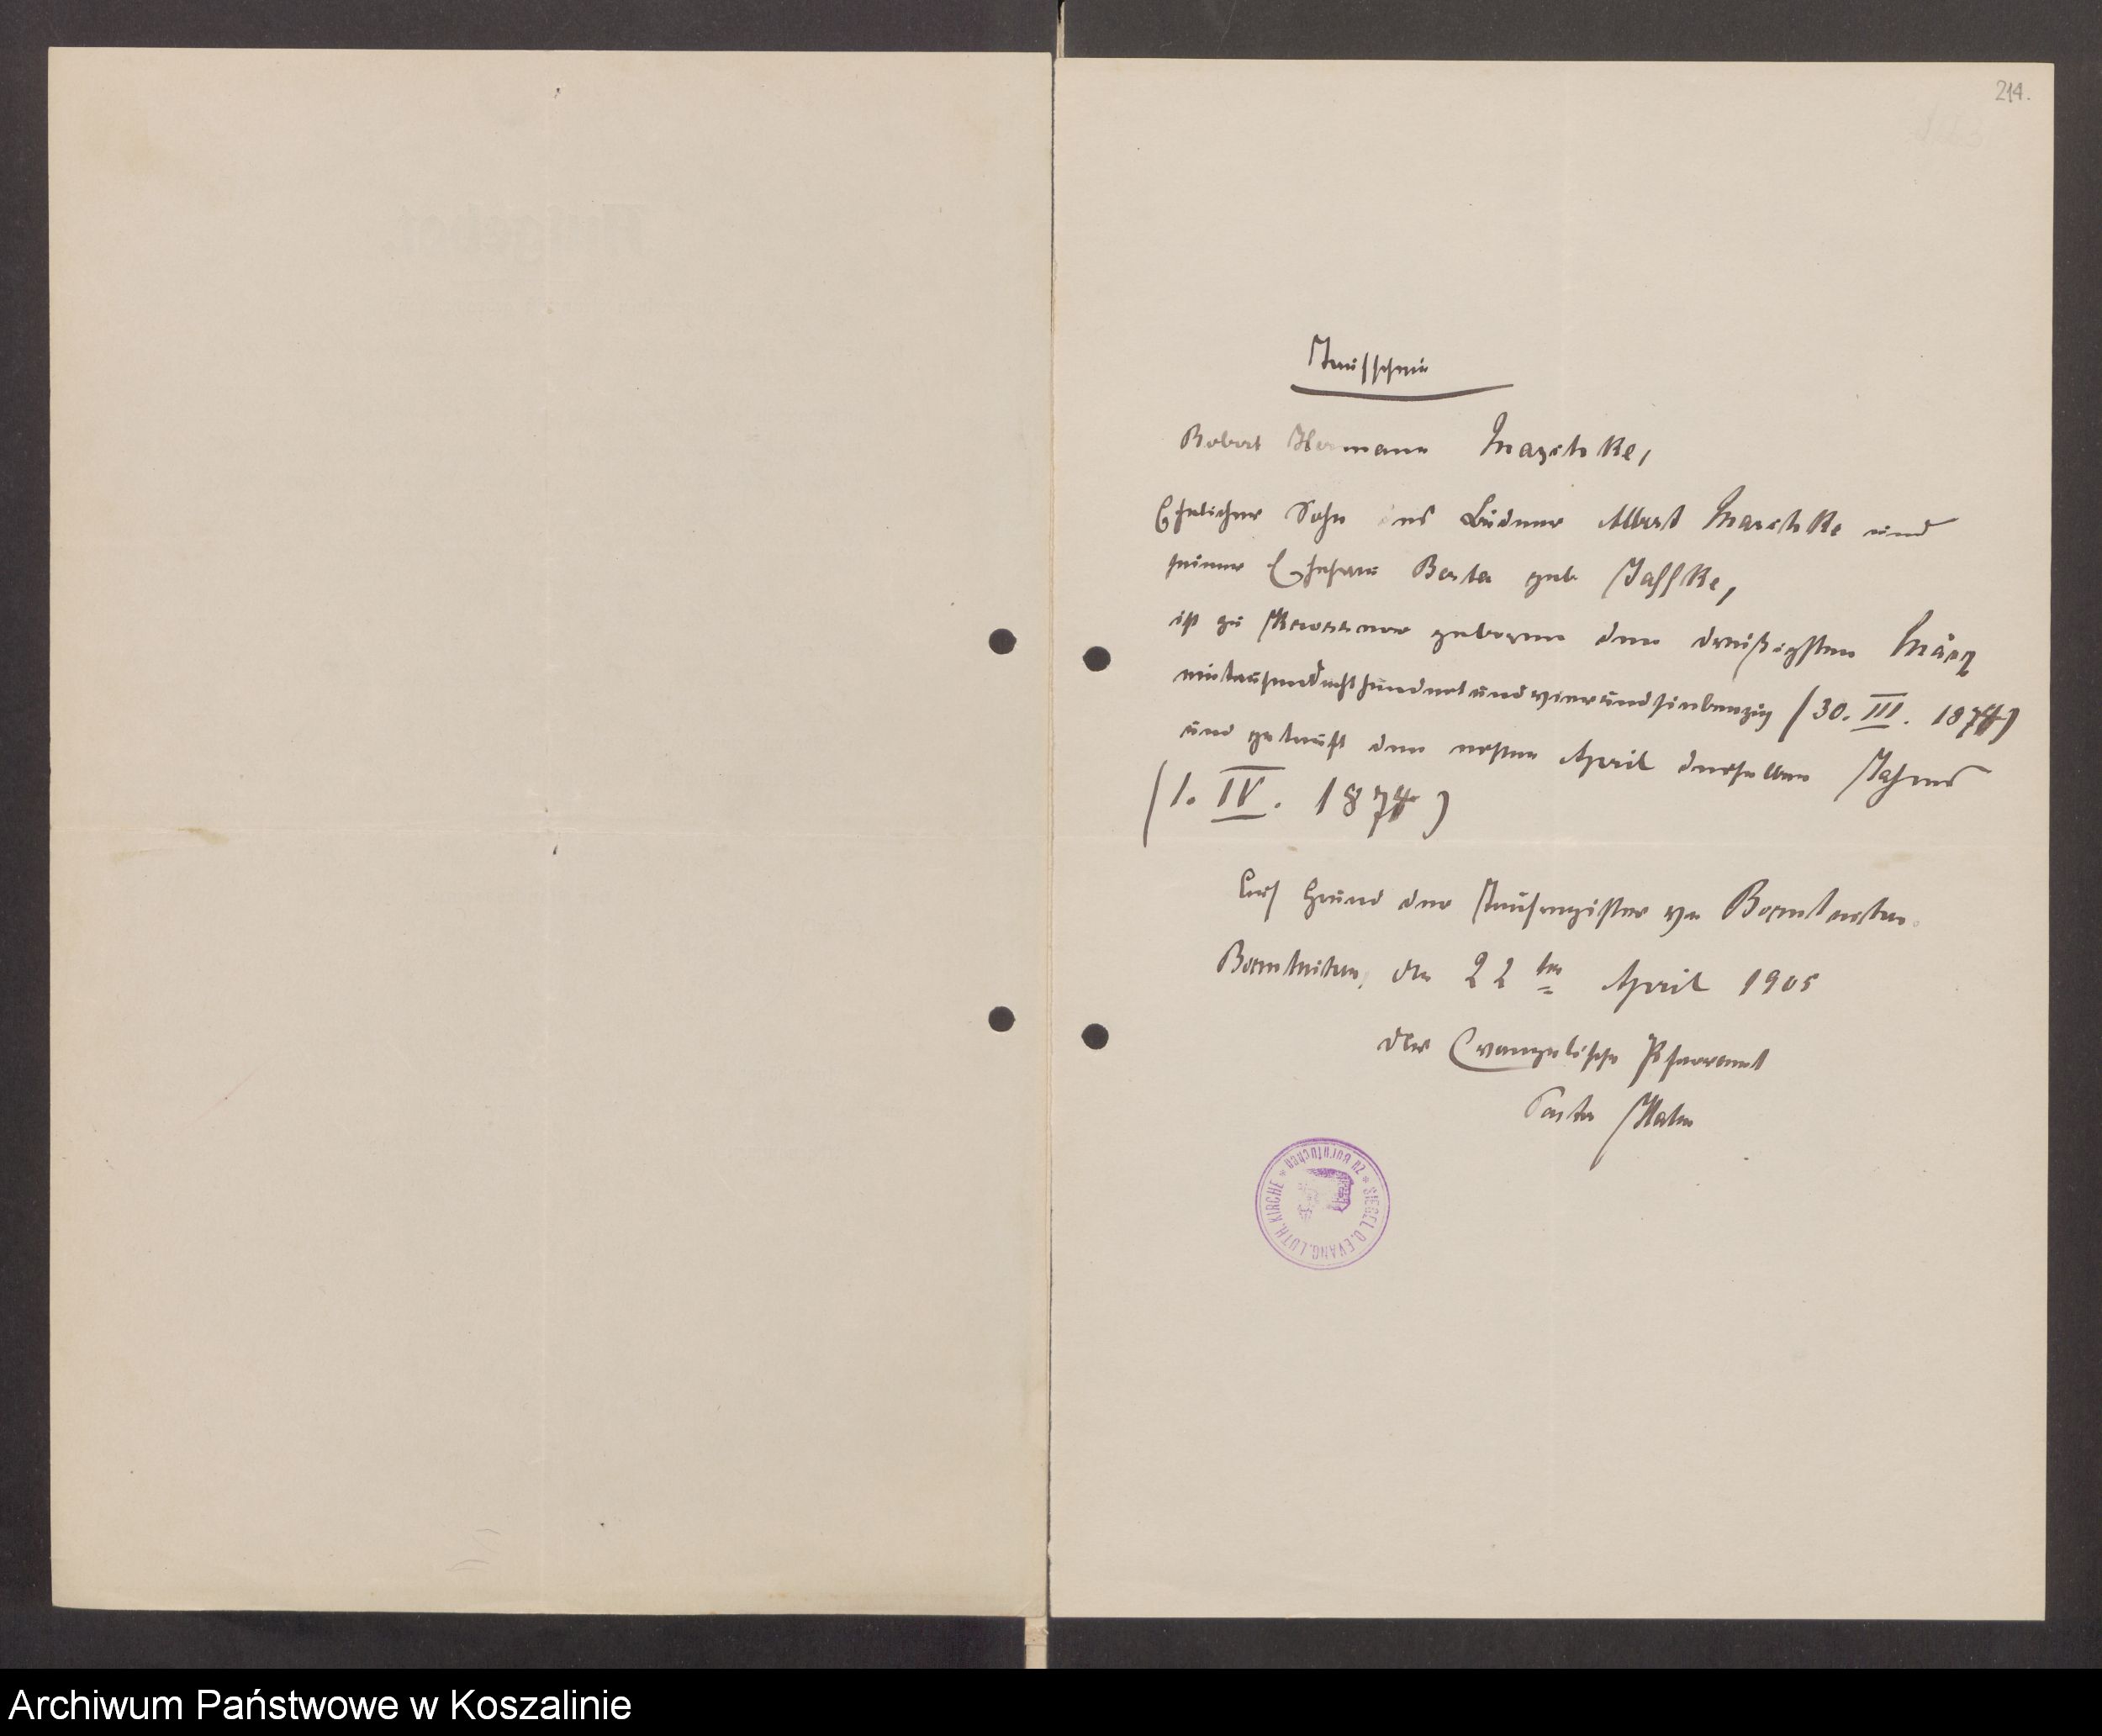 214.
Taufschein
Robert Hermann Maschke,
Ehelicher Sohn des Büdner Albert Maschke und
seiner Ehefrau Berta geb Jaffke,
ist zu geboren den dreißigsten März
eintausendachthundertundvierundsiebenzig (30. III. 1874)
und getauft den ersten April desselben Jahres
(1. IV. 1874)
Auf Grund der Taufregister zu Borntuchen.
Borntuchen, den 22ten April 1905
Das Evangelische Pfarramt
Pastor
* SIEGEL D. EVANG. LUTH. KIRCHE * zu Borntuchen
Aufgebot.
Archiwum Państwowe w Koszalinie